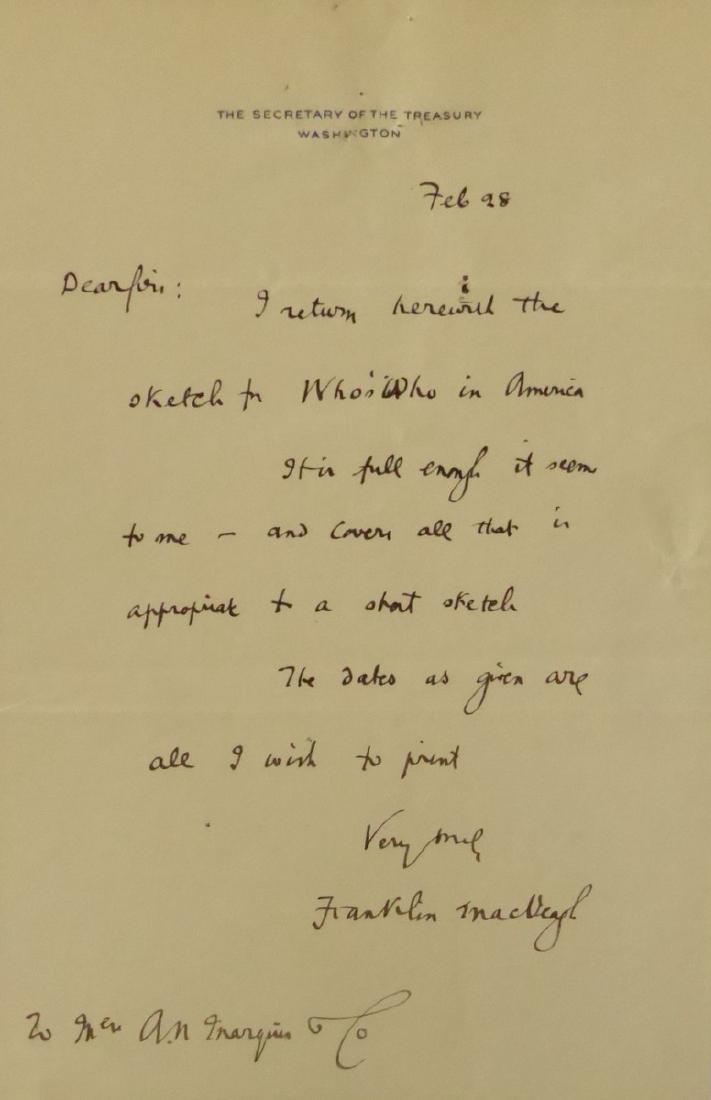 THE SECRETARY OF THE TREASURY
WASHINGTON
Feb 28
Dear Sirs:
I return herewith the
sketch for Who's Who in America
It is full enough it seems
to me – and covers all that is
appropriate to a short sketch
The dates as given are
all I wish to print
Very truly
Franklin MacVeagh
To Mess A.N Marquis & Co